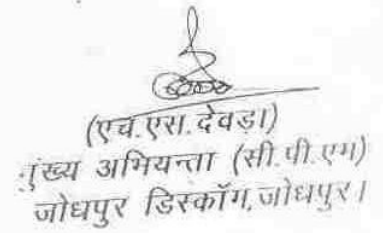 (एच.एस.देवड़ा)
मुख्य अभियन्ता (सी.पी.एम)
जोधपुर डिस्कॉम,जोधपुर।